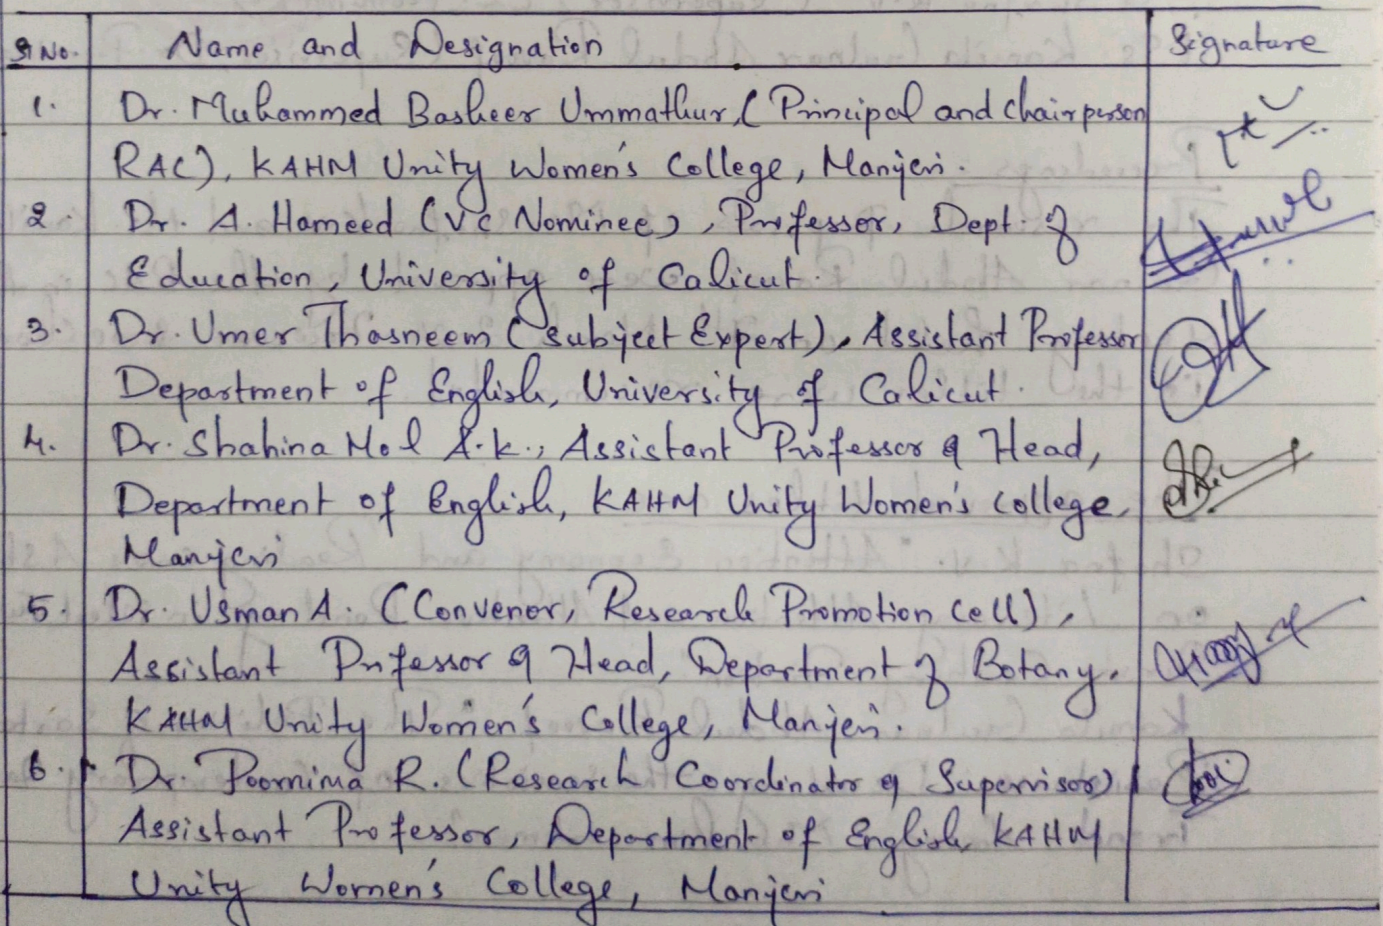 Sl No. Name and Designation Signature
1. Dr. Muhammed Basheer Ummathur, (Principal and Chairperson
RAC), KAHM Unity Women's College, Manjeri.
2. Dr. A. Hameed (VC Nominee), Professor, Dept. of
Education, University of Calicut.
3. Dr. Umer Thasneem (Subject Expert), Assistant Professor
Department of English, University of Calicut.
4. Dr. Shahina Mol A.K., Assistant Professor & Head,
Department of English, KAHM Unity Women's College,
Manjeri
5. Dr. Usman A. (Convenor, Research Promotion Cell),
Assistant Professor & Head, Department of Botany,
KAHM Unity Women's College, Manjeri.
6. Dr. Poornima R. (Research Coordinator & Supervisor)
Assistant Professor, Department of English, KAHM
Unity Women's College, Manjeri